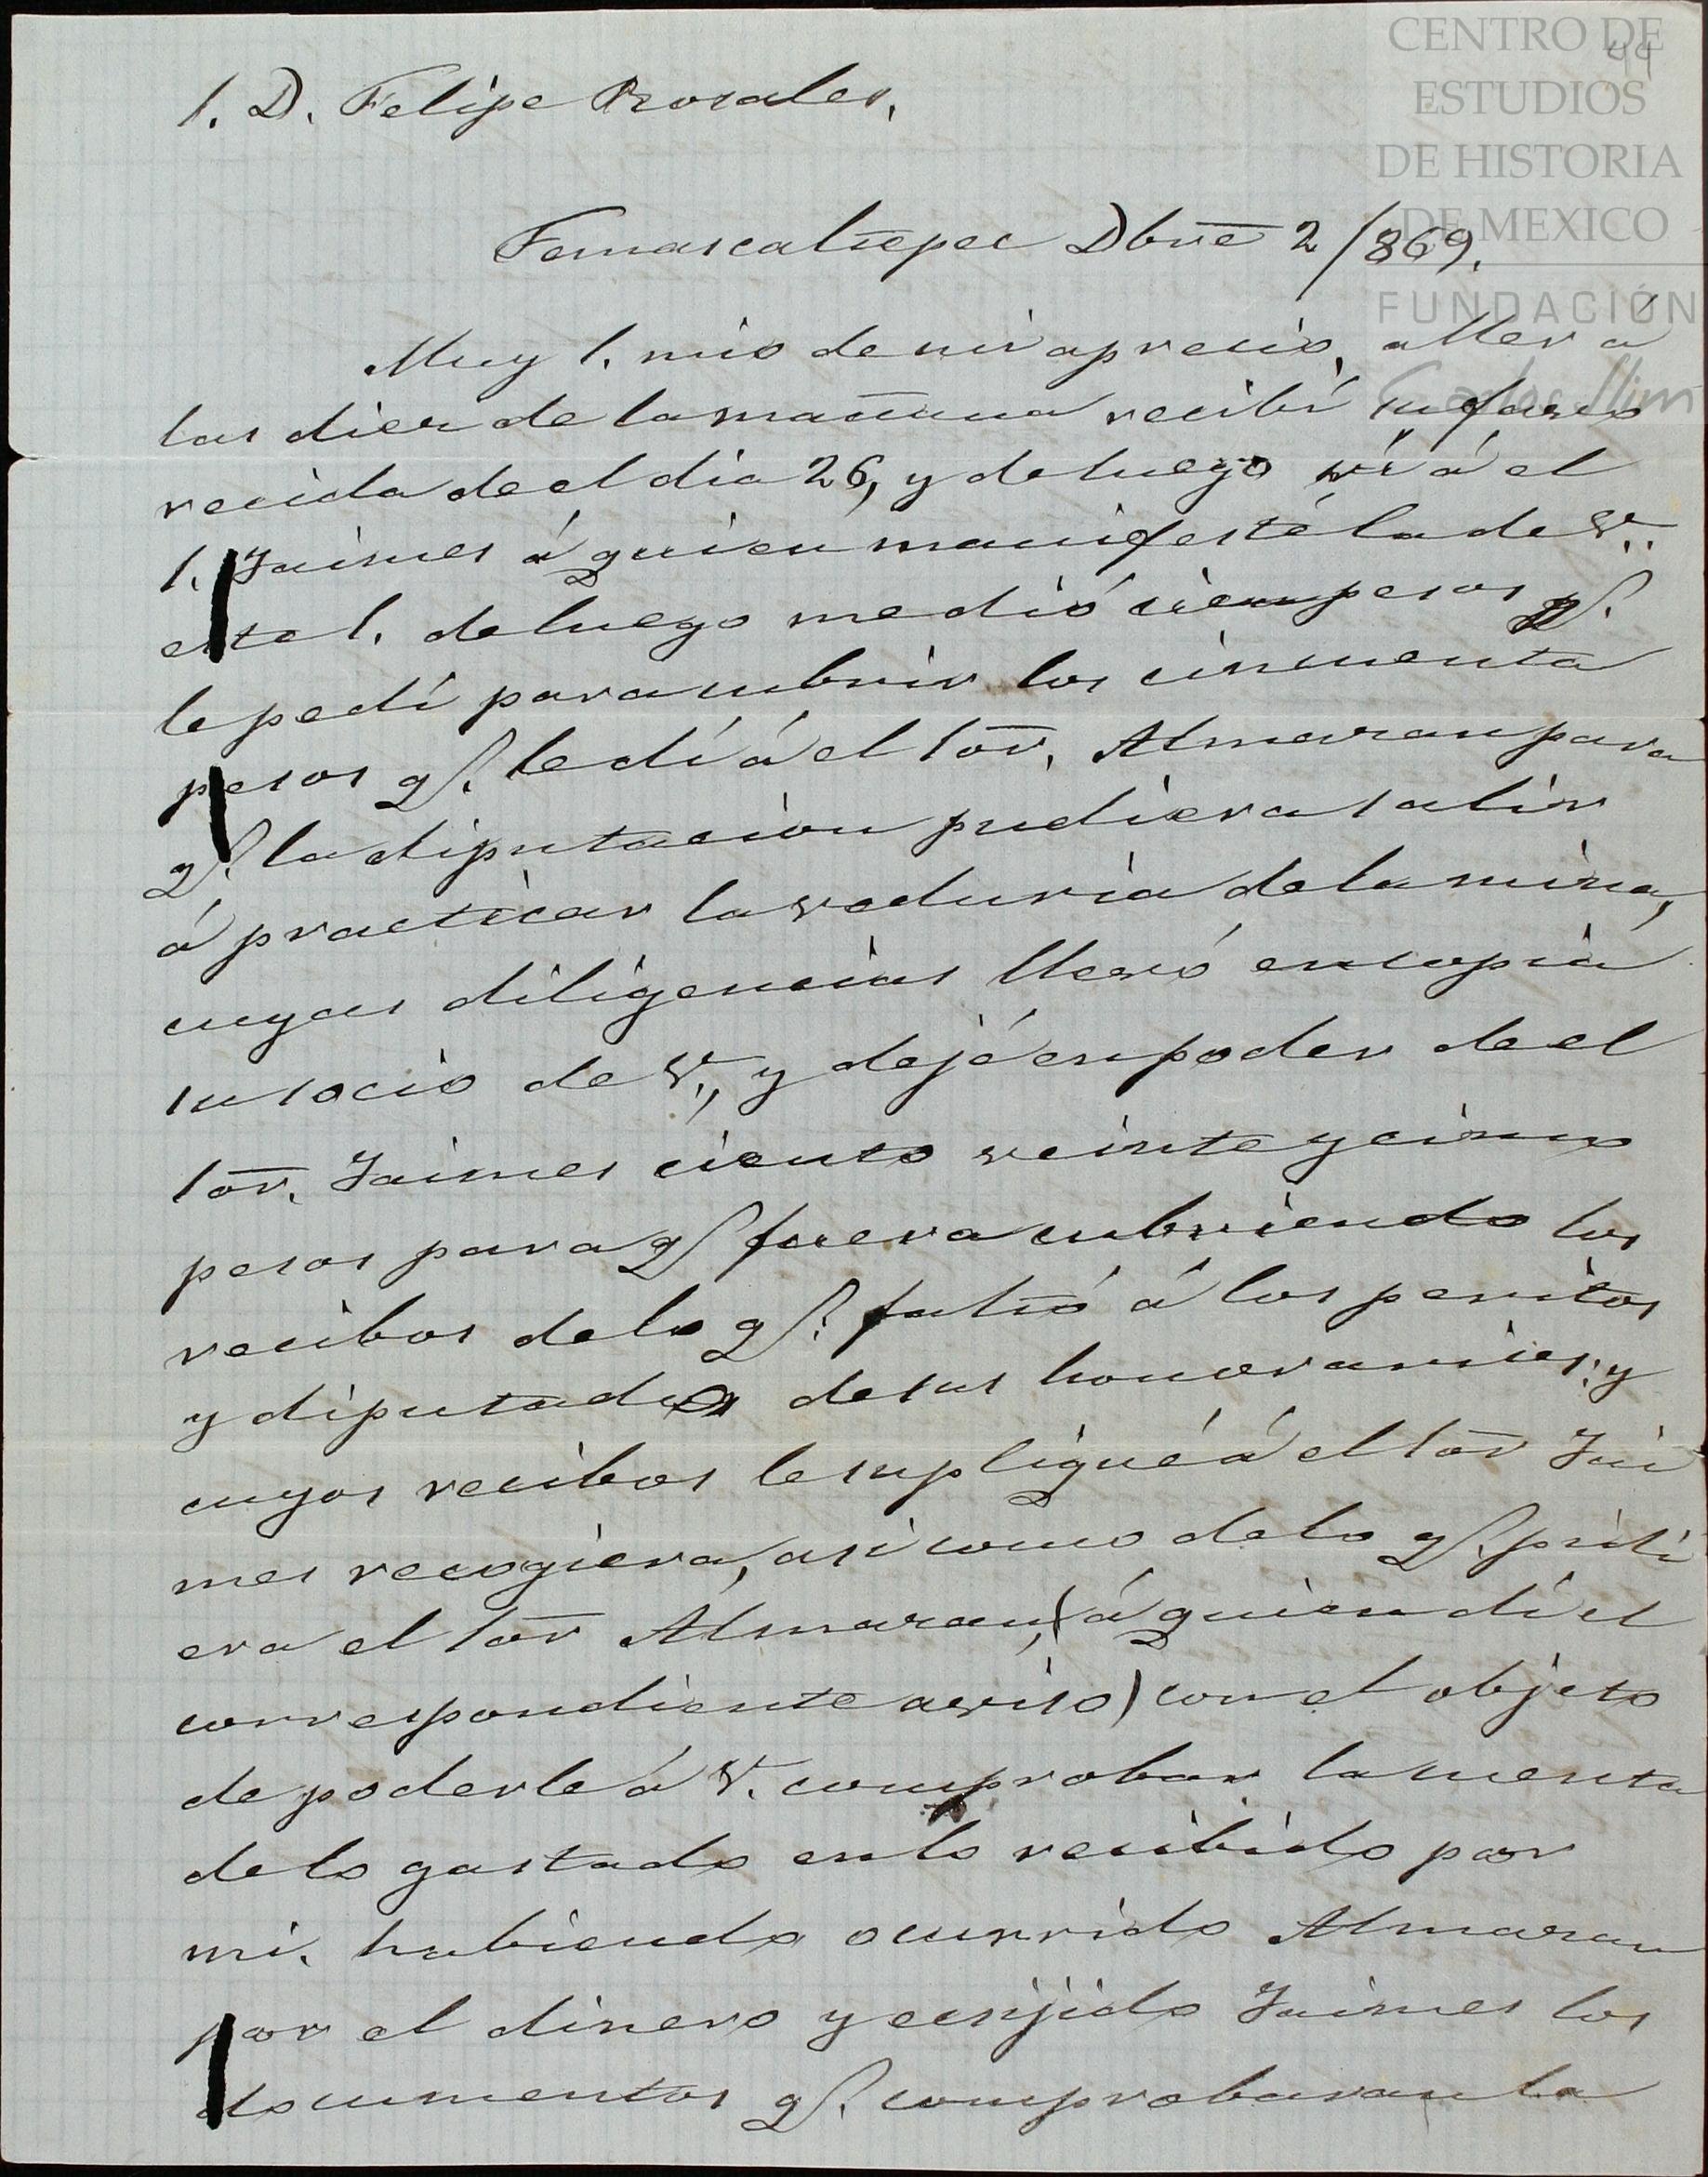 CENTRO DE
ESTUDIOS
DE HISTORIA
DE MEXICO
FUNDACIÓN
Carlos Slim
44
S. D. Felipe Rosales.
Temascaltepec Dbre 2/869.
Muy S. mio de mi aprecio, alles a
las diez de la mañana recibí su favo
recida de el dia 26, y de luego ví á el
S. Jaimes á quien manifesté la de V.
este S. de luego me dió cien pesos q.
le pedí para cubrir los cincuenta
pesos q. le dí á el Sōr. Almazan para
q. la diputacion pudiera salir
á practicar la veduria de la mina,
cuyas diligencias llevó en copia
su socio de V., y dejé en poder de el
Sōr. Jaimes ciento veinte y cinco
pesos para q. fuera cubriendo los
recibos de lo q. faltó á los peritos
y diputados de sus honorarios; y
cuyos recibos le supliqué á el Sōr Jai
mes recogiera, asi como de lo q. pidi
era el Sōr Almazan, (á quien dí el
correspondiente aviso) con el objeto
de poderle á V. comprobar la cuenta
de lo gastado en lo recibido por
mi. habiendo ocurrido Almazan
por el dinero y ecsijido Jaimes los
documentos q. comprobaran la